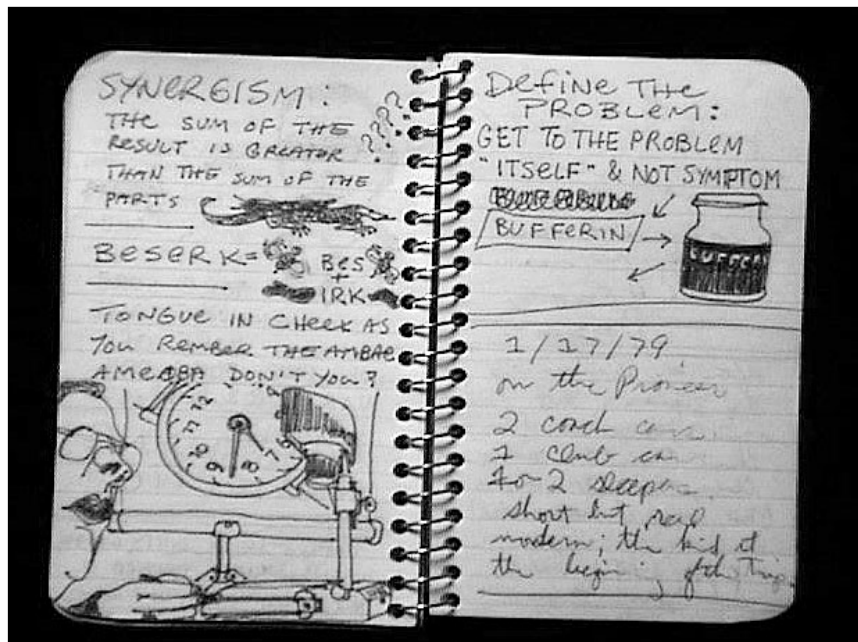 SYNERGISM:
THE SUM OF THE ???
RESULT IS GREATER ?
THAN THE SUM OF THE
PARTS
BESERK= BES
+
IRK
TONGUE IN CHEEK AS
YOU REMBER THE AMBAE
AMEABA DON'T YOU?
12
11
10
9
8
7
6
DEFINE THE
PROBLEM:
GET TO THE PROBLEM
"ITSELF" & NOT SYMPTOM
BUFFERIN
BUFFERIN
1/17/79
on the Pioneer
2 coach cars
1 club car
1 or 2 sleepers
short but real
modern; the kid at
the begining of the trip